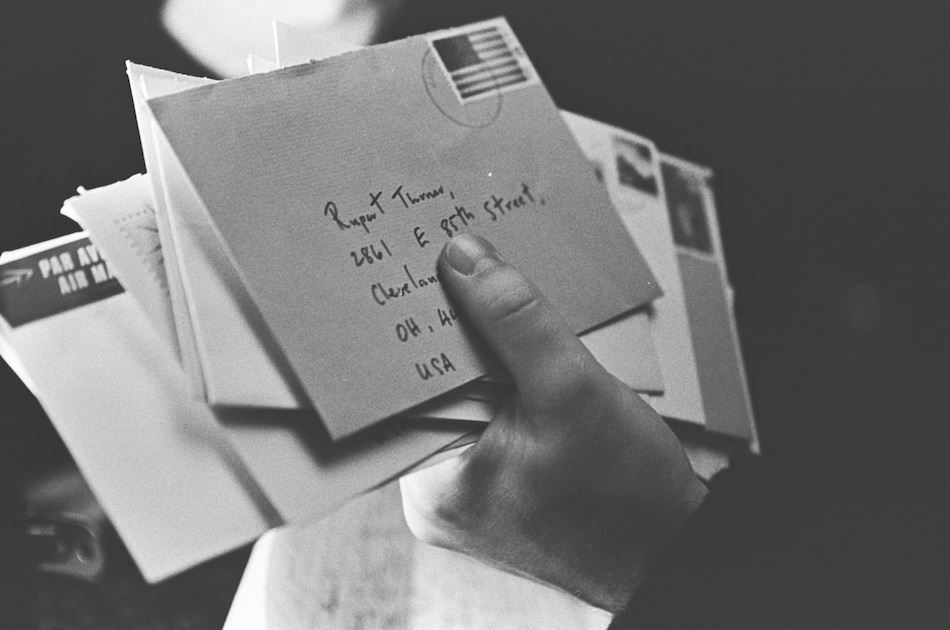 Rupert Turner,
2861 E 85th Street,
Cleveland
OH, 44
USA
PAR AV
AIR MA